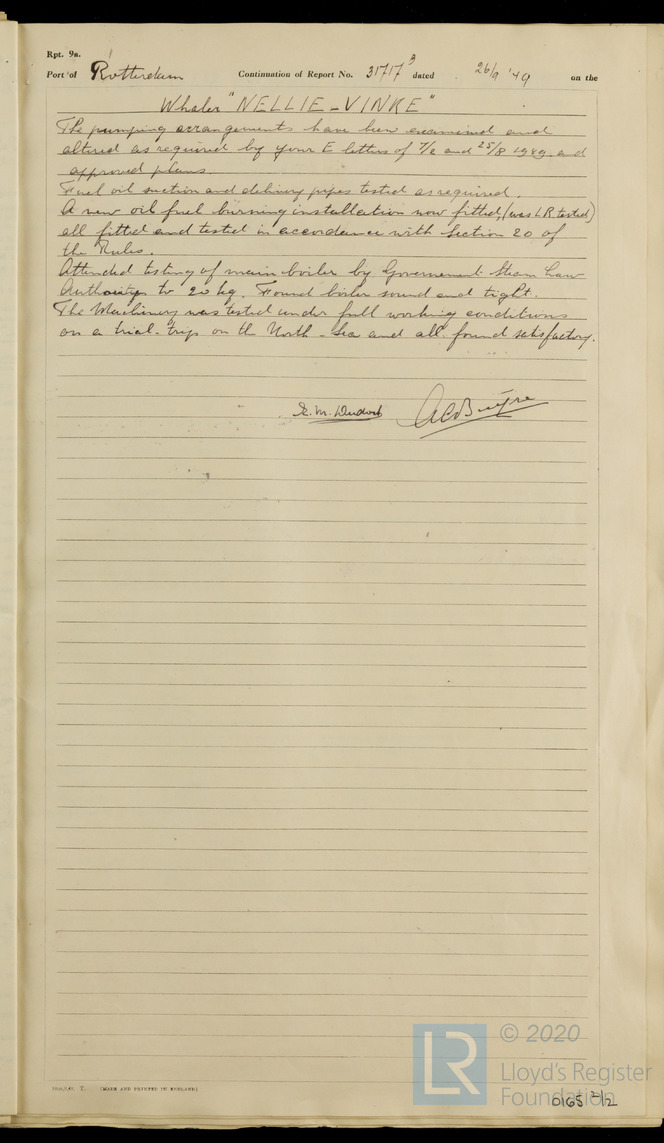 Rpt. 9a.
Port of Rotterdam Continuation of Report No. 31717³ dated 26/9 '49 on the
Whaler "NELLIE - VINKE"
The pumping arrangements have been examined and
altered as required by your E letters of 7/2 and 25/8 1949 and
approved plans.
Fuel oil suction and delivery pipes tested as required.
A new oil fuel burning installation now fitted, (was LR tested)
all fitted and tested in accordance with Section 20 of
the Rules.
Attended testing of main boiler by Government Steam Law
Authority to 20 kg. Found boiler sound and tight.
The Machinery was tested under full working conditions
on a trial-trip on the North-Sea and all found satisfactory.
(MADE AND PRINTED IN ENGLAND)
LR © 2020
Lloyd's Register
Foundation
0165 2/2